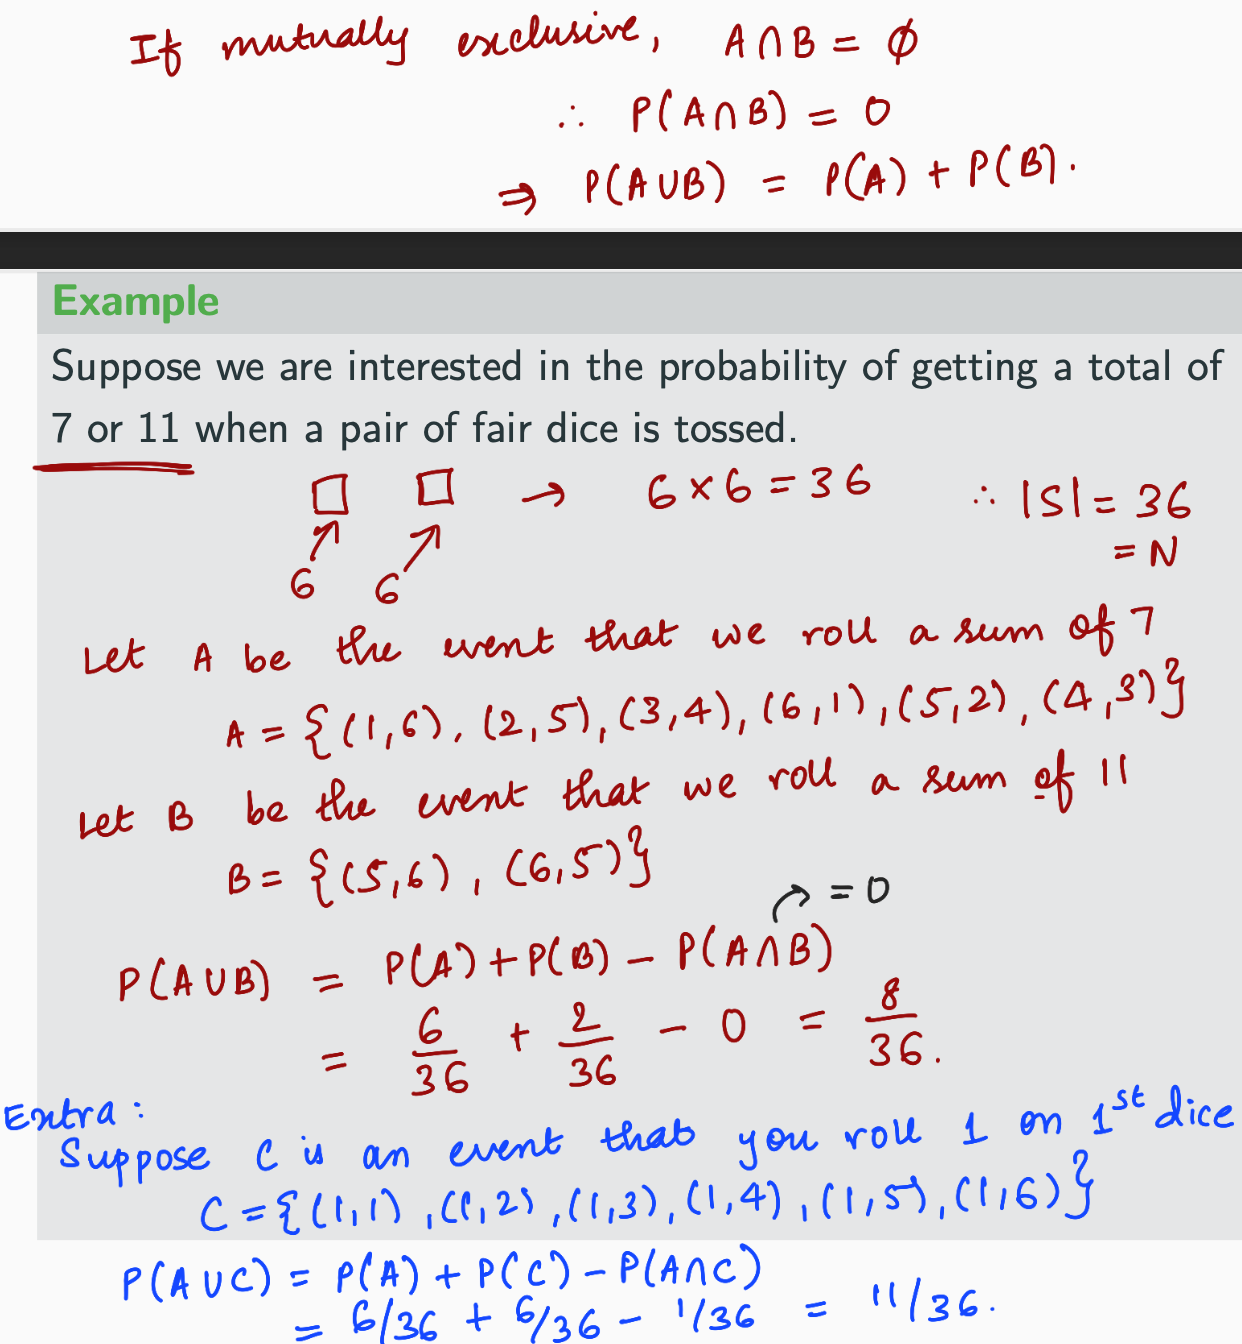 If mutually exclusive, A∩B = ∅
∴ P(A∩B) = 0
⇒ P(A∪B) = P(A) + P(B).
Example
Suppose we are interested in the probability of getting a total of
7 or 11 when a pair of fair dice is tossed.
□ □ → 6×6 = 36 ∴ |S| = 36
6 6 = N
Let A be the event that we roll a sum of 7
A = {(1,6), (2,5), (3,4), (6,1), (5,2), (4,3)}
Let B be the event that we roll a sum of 11
B = {(5,6), (6,5)}
= 0
P(A∪B) = P(A) + P(B) − P(A∩B)
= 6/36 + 2/36 − 0 = 8/36.
Extra:
Suppose C is an event that you roll 1 on 1st dice
C = {(1,1), (1,2), (1,3), (1,4), (1,5), (1,6)}
P(A∪C) = P(A) + P(C) − P(A∩C)
= 6/36 + 6/36 − 1/36 = 11/36.